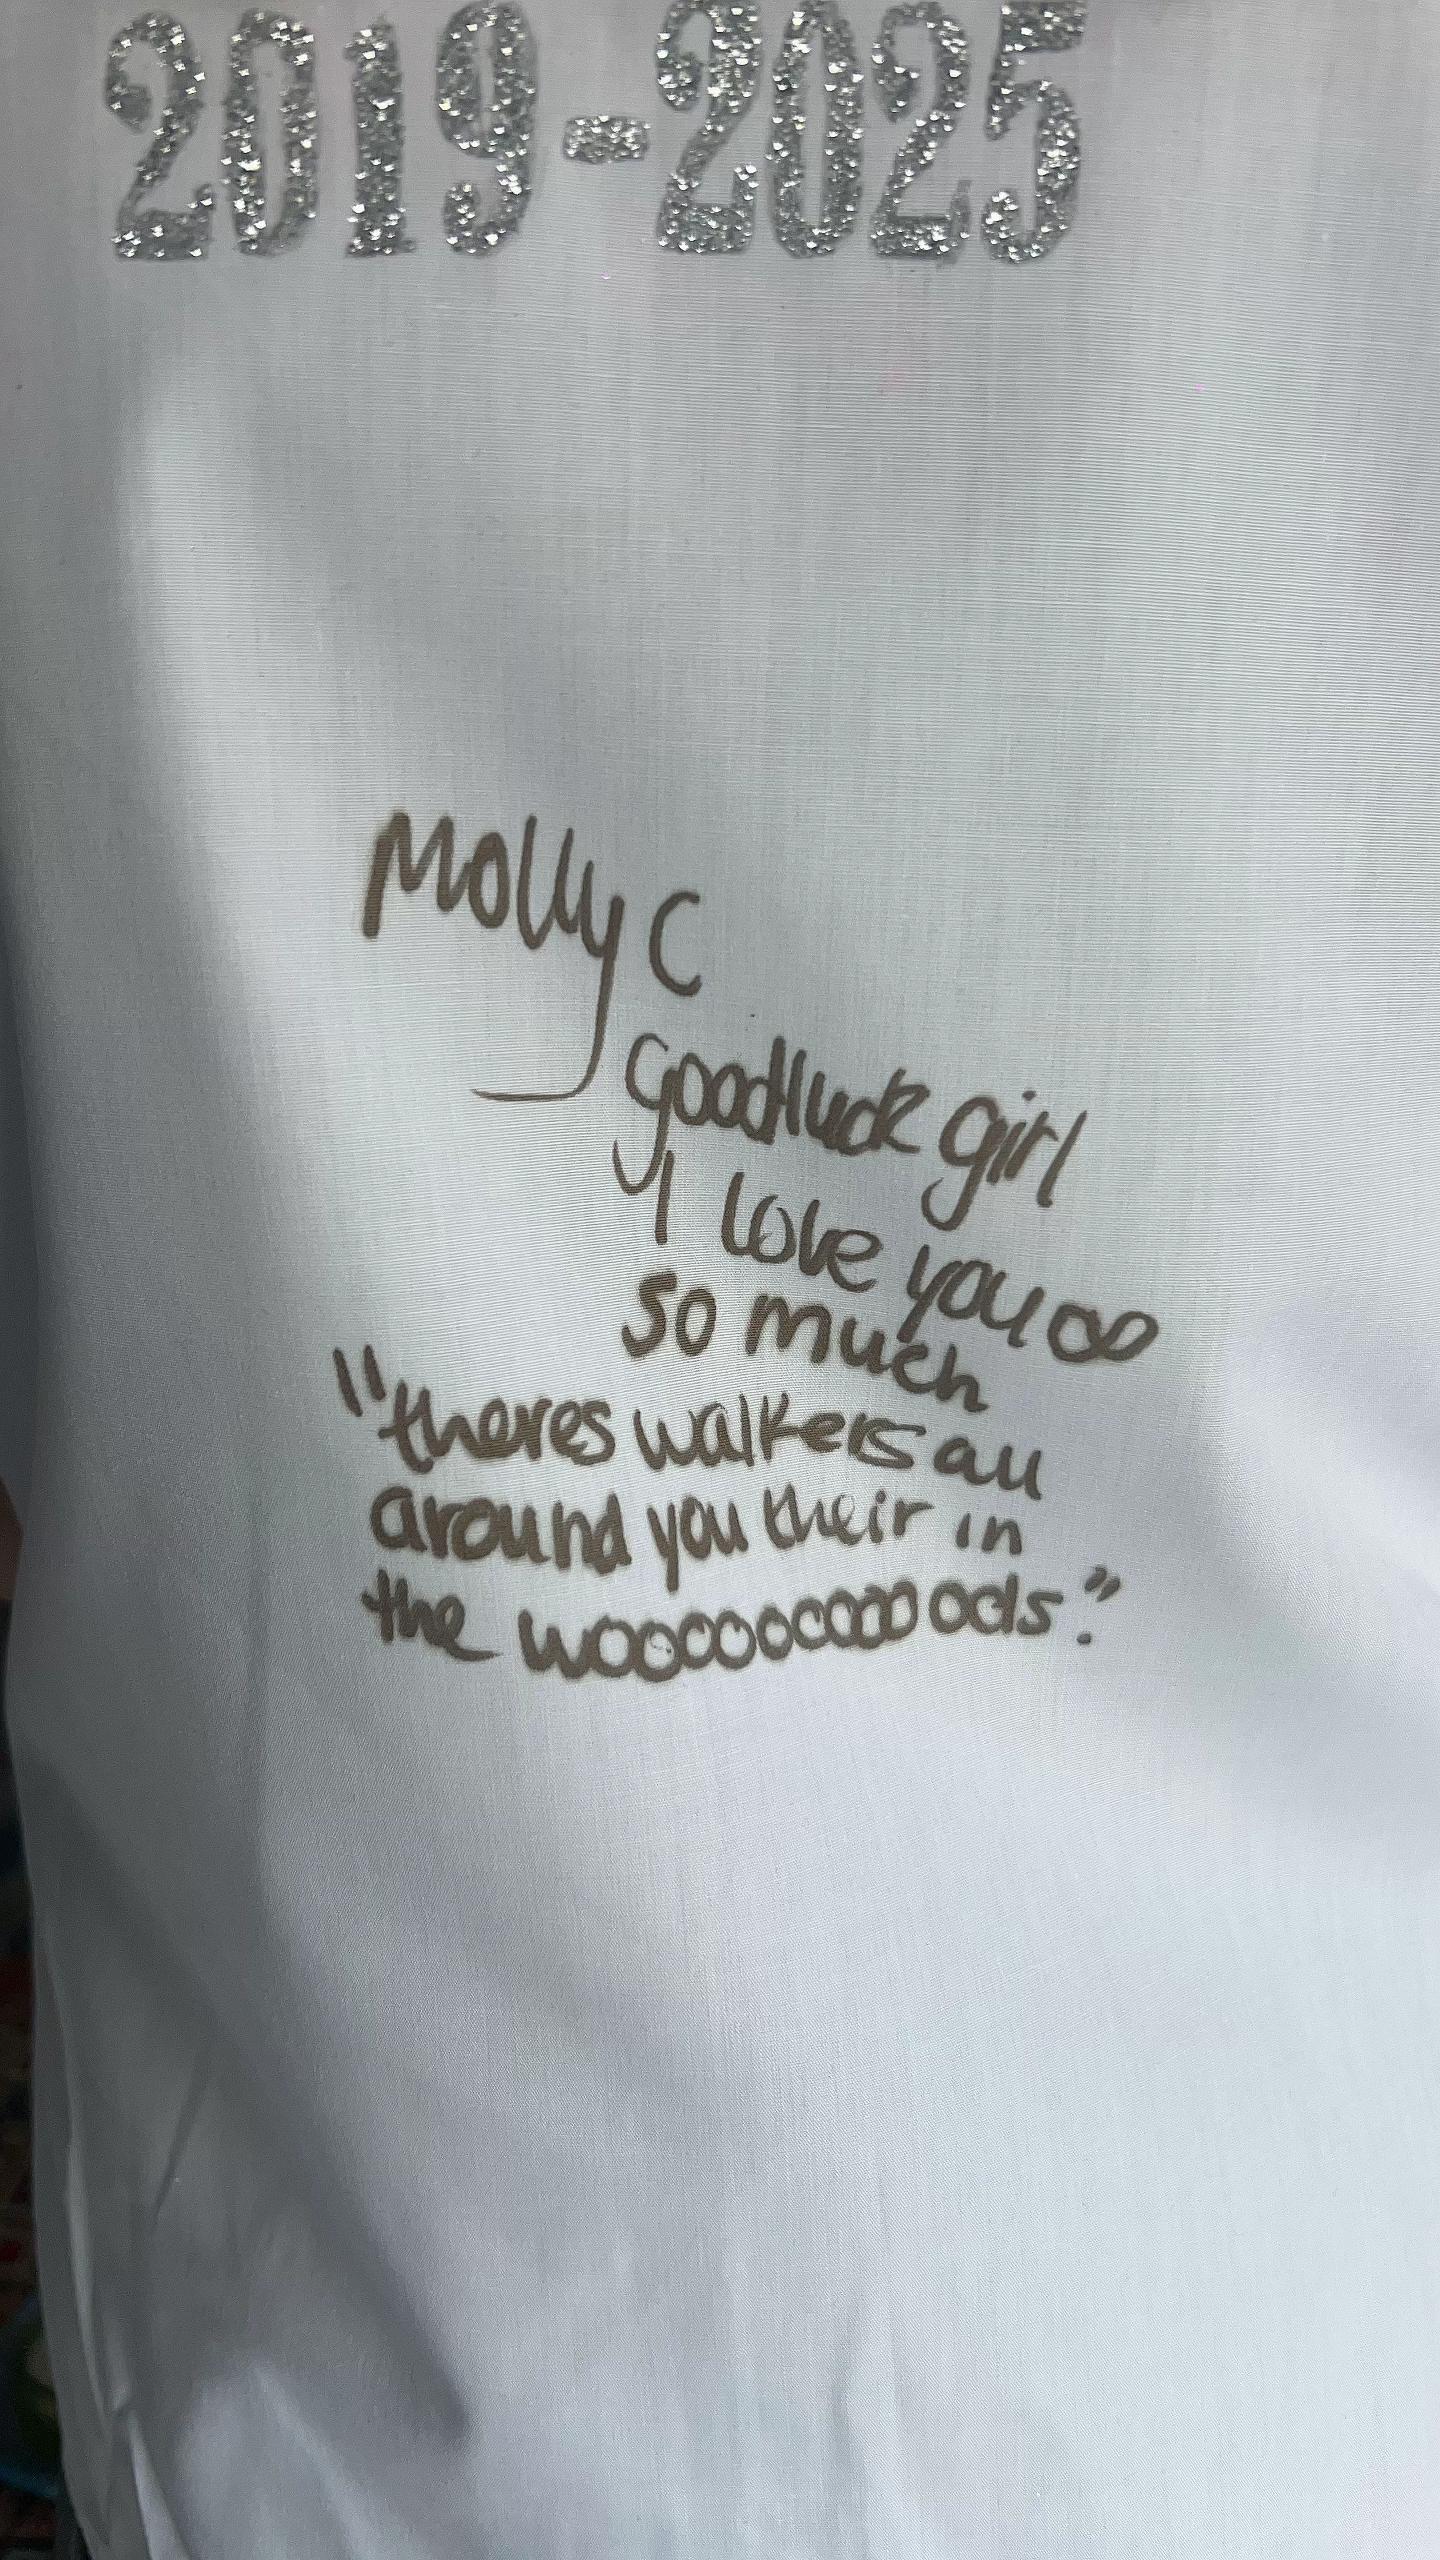 2019-2025
Molly C
goodluck girl
I love you ∞
so much
"theres walkers all
around you their in
the woooooooooods."